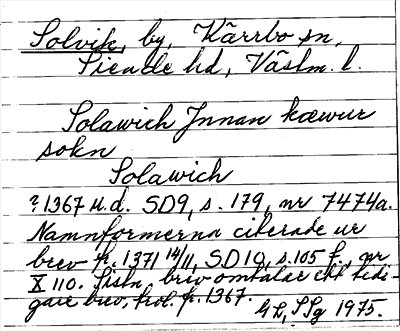 Solvik, by, Kärrbo sn,
Siende hd, Västm. l.
Solawich Jnnan kæwur
sokn
Solawich
?1367 u.d. SD9, s. 179, nr 7474a.
Namnformerna citerade ur
brev fr. 1371 14/11, SD10, s.105 f., nr
X 110. Sista brev omtalar ett tidi-
gare brev, trol. fr. 1367.
GL, SSg 1975.